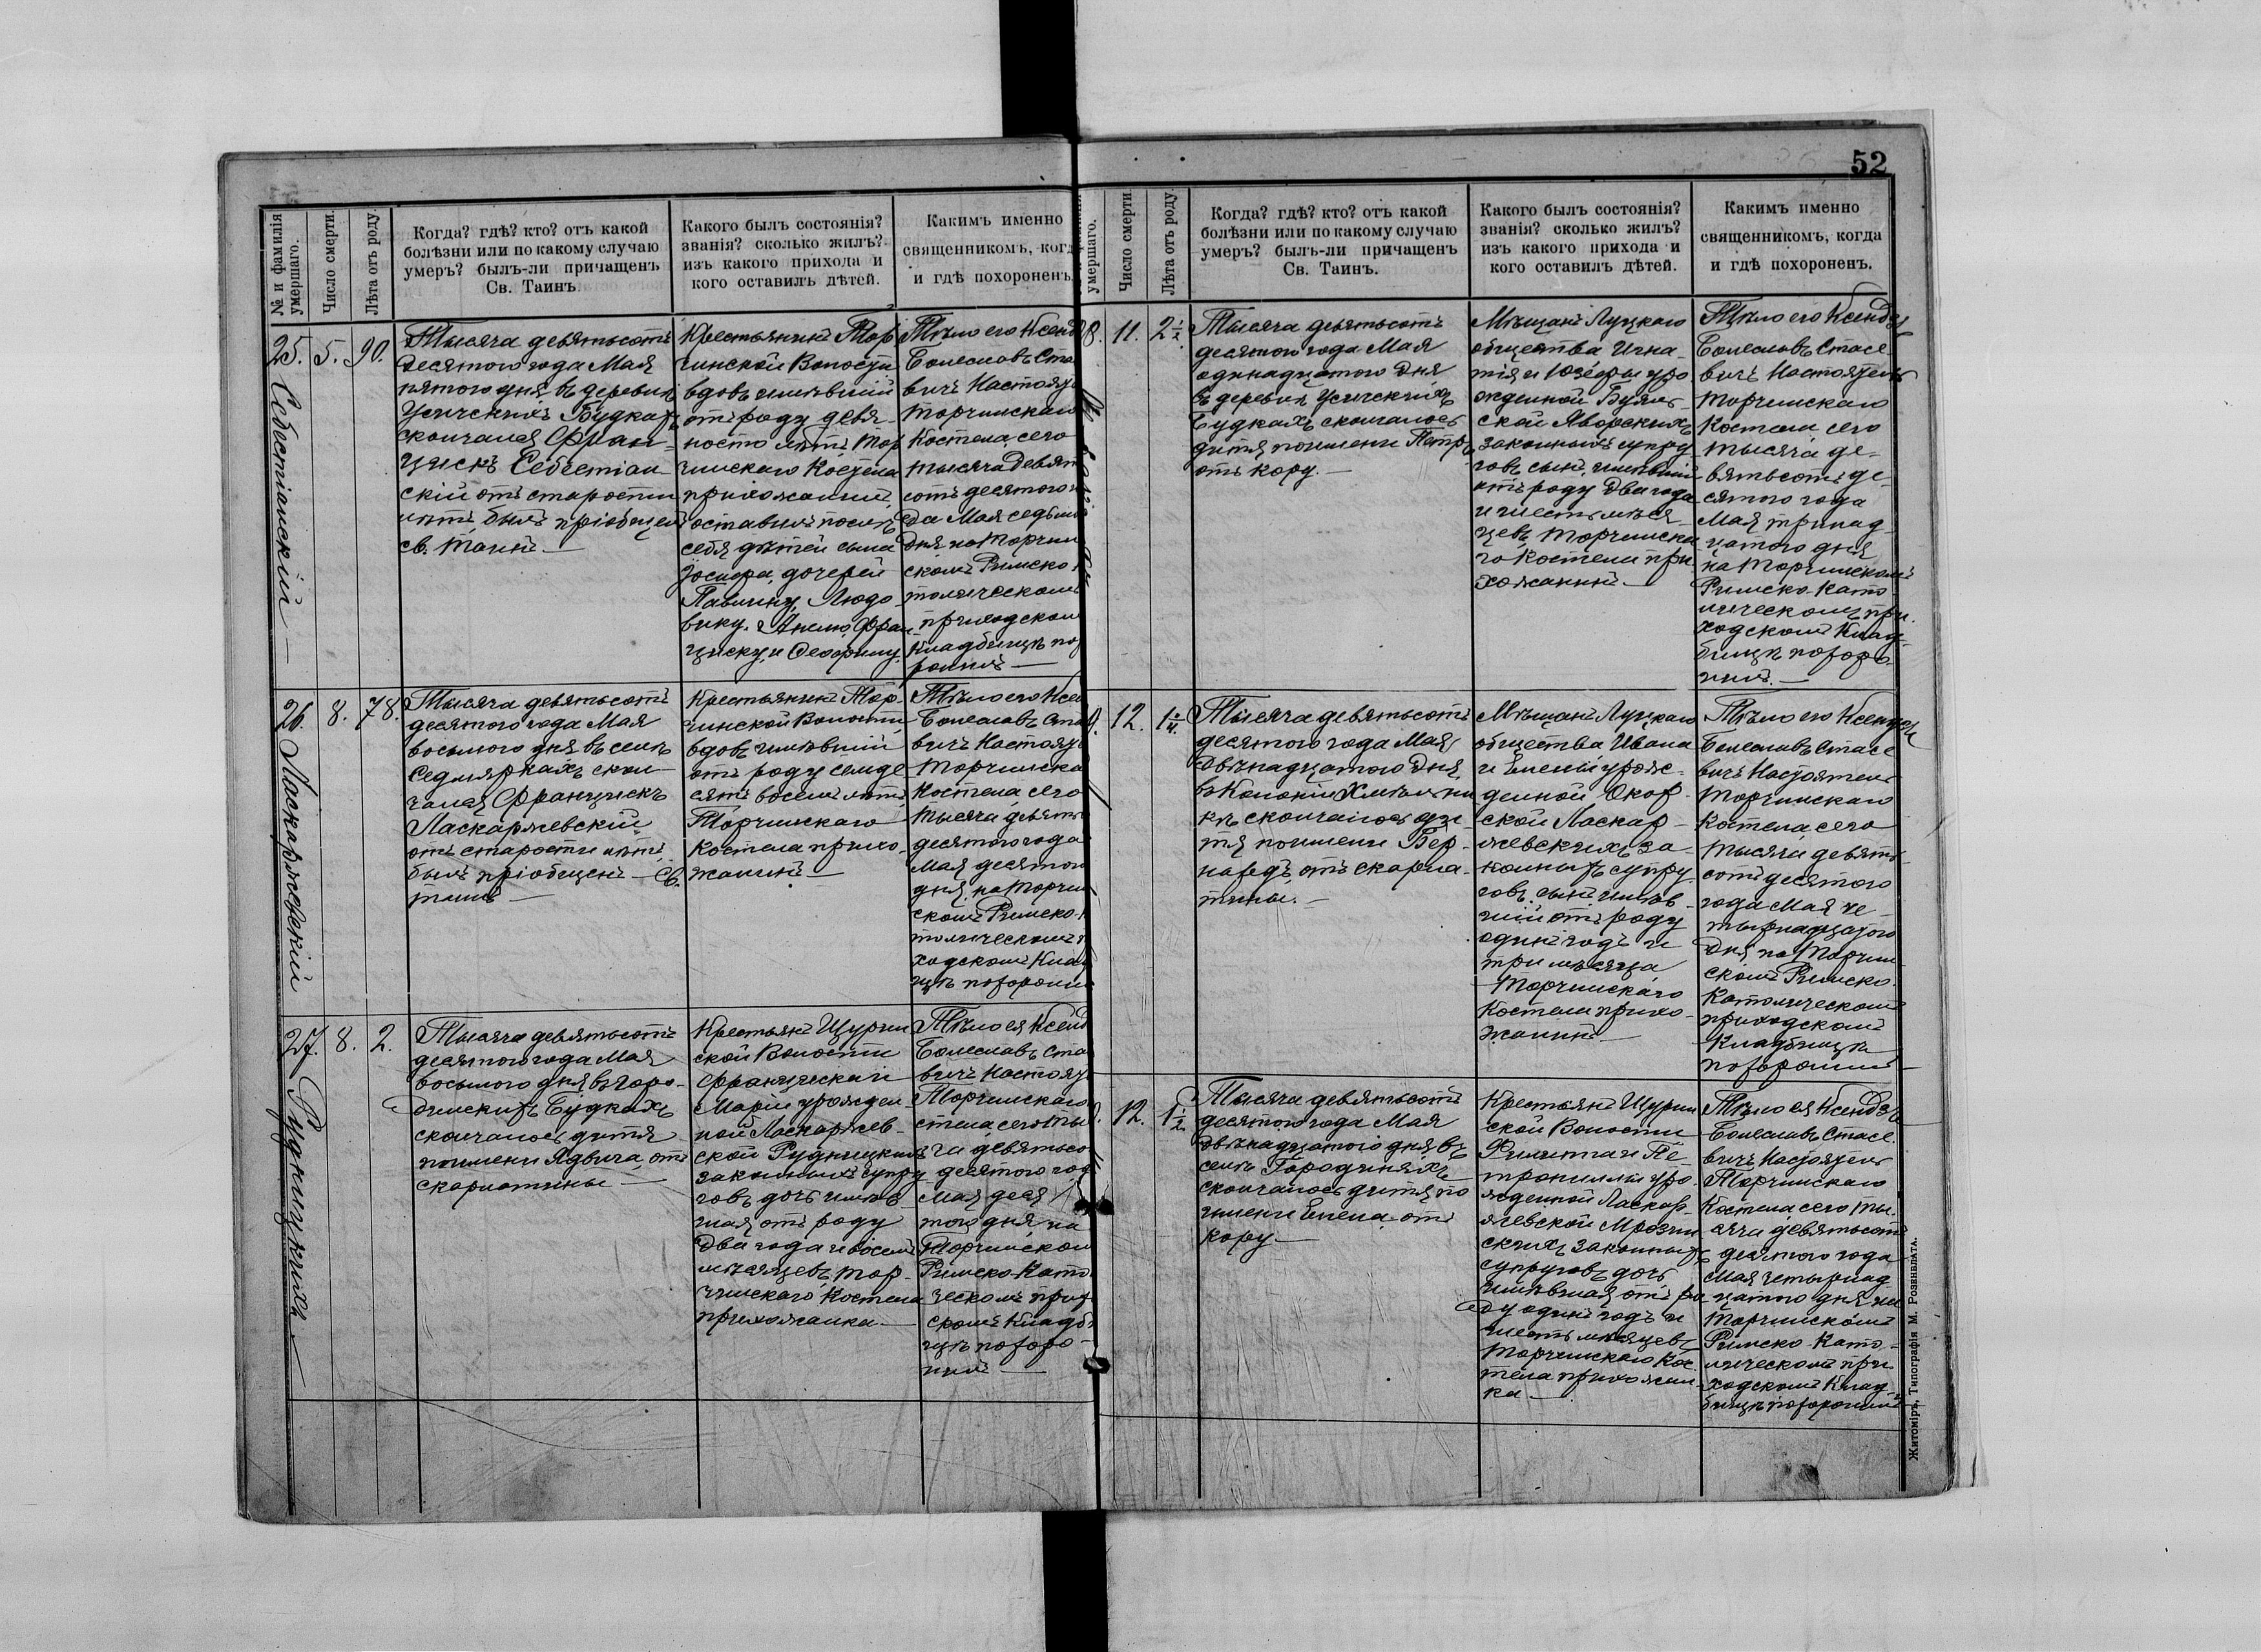 52
№ и фамилія
умершаго.
Число смерти.
Лѣта отъ роду.
Когда? гдѣ? кто? отъ какой
болѣзни или по какому случаю
умеръ? былъ-ли причащенъ
Св. Таинъ.
Какого былъ состоянія?
званія? сколько жилъ?
изъ какого прихода и
кого оставилъ дѣтей.
Какимъ именно
священникомъ, когд
и гдѣ похороненъ.
25.
Себестіанскій
5.
90.
Тысяча девятьсотъ
десятого года Мая
пятого дня въ деревнѣ
Усичскихъ Будкахъ
скончался Фран-
цискъ Себестіан-
скій отъ старости
лѣтъ, былъ пріобщенъ
св. таинъ
Крестьянинъ Тор
чинской Волости
вдовъ имѣвшій
отъ роду девя-
носто лѣтъ Тор
чинскаго Костела
прихожанинъ,
оставилъ послѣ
себя дѣтей сына
Іосифа, дочерей
Павлину, Людо-
вику, Анелю, Фран-
циску, и Теофилу.
Тѣло его Ксенд
Болеславъ Ста
вичъ Настоят
Торчинскаго
Костела, сего
тысяча девят
сотъ десятого
да Мая седьм
дня, на Торчин
скомъ Римско
толическомъ
приходском
Кладбищѣ по
ронилъ
26.
Ласкаржевскій
8.
78.
Тысяча девятьсотъ
десятого года Мая
восьмого дня въ селѣ
Седмяркахъ скон-
чался Францискъ
Ласкаржевскій
отъ старости лѣтъ
былъ пріобщенъ Св.
таинъ
Крестьянинъ Тор-
чинской Волости,
вдовъ имѣвшій
отъ роду семде
сятъ восемь лѣтъ,
Торчинскаго
Костела прихо-
жанинъ
Тѣло его Ксен
Болеславъ Ста
вичъ Настоят
Торчинска
Костела, сего
тысяча девять
десятого года
Мая десятого
дня, на Торчин
скомъ Римско-
толическомъ
ходскомъ Клад
щѣ похоронил
27.
Рудницкихъ
8.
2.
Тысяча девятьсотъ
десятого года Мая
восьмого дня въ Горо-
динскихъ Будкахъ
скончалось дитя
по имени Ядвига, отъ
скарлатины
Крестьянъ Щурин
ской Волости
Франциска и
Маріи урожден
ной Ласкаржев-
ской Рудницкихъ
законныхъ супру
говъ дочь имѣв-
шая отъ роду
два года и восемь
мѣсяцевъ, Тор-
чинскаго Костела
прихожанка
Тѣло ея Ксенд
Болеславъ Ста
вичъ Настоят
Торчинскаго
стела сего ты
ча девятьсо
десятого год
Мая деся
того дня, на
Торчинском
Римско-Като
ческомъ прих
скомъ Кладб
щѣ похоро-
нилъ
умершаго.
Число смерти.
Лѣта отъ роду.
Когда? гдѣ? кто? отъ какой
болѣзни или по какому случаю
умеръ? былъ-ли причащенъ
Св. Таинъ.
Какого былъ состоянія?
званія? сколько жилъ?
изъ какого прихода и
кого оставилъ дѣтей.
Какимъ именно
священникомъ, когда
и гдѣ похороненъ.
8.
11.
2 1/2
Тысяча девятьсотъ
десятого года Мая
одинадцатого дня
въ деревнѣ Усичскихъ
Будкахъ скончалось
дитя по имени Петръ
отъ кору.
Мѣщанъ Луцкаго
общества Игна-
тія и Юзефы уро
жденной Буяль-
ской Яворскихъ
законныхъ супру
говъ сынъ, имѣвшій
отъ роду два года
и шесть мѣся-
цевъ, Торчинска
го Костела при
хожанинъ
Тѣло его Ксендзъ
Болеславъ Стасе
вичъ Настоятель
Торчинскаго
Костела сего
тысяча де-
вятьсотъ де-
сятого года
Мая тринад-
цатого дня
на Торчинскомъ
Римско-Като-
лическомъ при-
ходскомъ Клад-
бищѣ похоро-
нилъ.
12.
1 1/4
Тысяча девятьсотъ
десятого года Мая
двѣнадцатого дня,
въ Колоніи Хмѣльни
кѣ скончалось ди-
тя по имени Бер-
нардъ, отъ скарла-
тины.
Мѣщанъ Луцкаго
общества Ивана
и Еленіи урож-
денной Скор-
ской Ласкар-
жевскихъ за-
конныхъ супру-
говъ, сынъ имѣв-
шій отъ роду
одинъ годъ и
три мѣсяца,
Торчинскаго
Костела прихо-
жанинъ
Тѣло его Ксендзъ
Болеславъ Стасе
вичъ Настоятель
Торчинскаго
Костела, сего
тысяча девять-
сотъ десятого
года Мая че-
тырнадцатого
дня, на Торчин-
скомъ Римско-
Католическомъ
приходскомъ
Кладбищѣ
похоронилъ
12.
1 1/2
Тысяча девятьсотъ
десятого года Мая
двѣнадцатого дня въ
селѣ Городиняхъ
скончалось дитя по
имени Елена отъ
кору
Крестьянъ Щурин
ской Волости
Филиппа и Пе-
трониллы уро-
жденной Ласкар-
жевской Мрозин
скихъ законныхъ
супруговъ дочь
имѣвшая отъ ро
ду одинъ годъ и
шесть мѣсяцевъ
Торчинскаго Кос
тела прихожан-
ка
Тѣло ея Ксендзъ
Болеславъ Стасе
вичъ Настоятель
Торчинскаго
Костела сего ты-
сяча девятьсотъ
десятого года
Мая четырнад
цатого дня на
Торчинскомъ
Римско-Като-
лическомъ при-
ходскомъ Клад
бищѣ похоронилъ
Житоміръ, Типографія М. Розенблата.